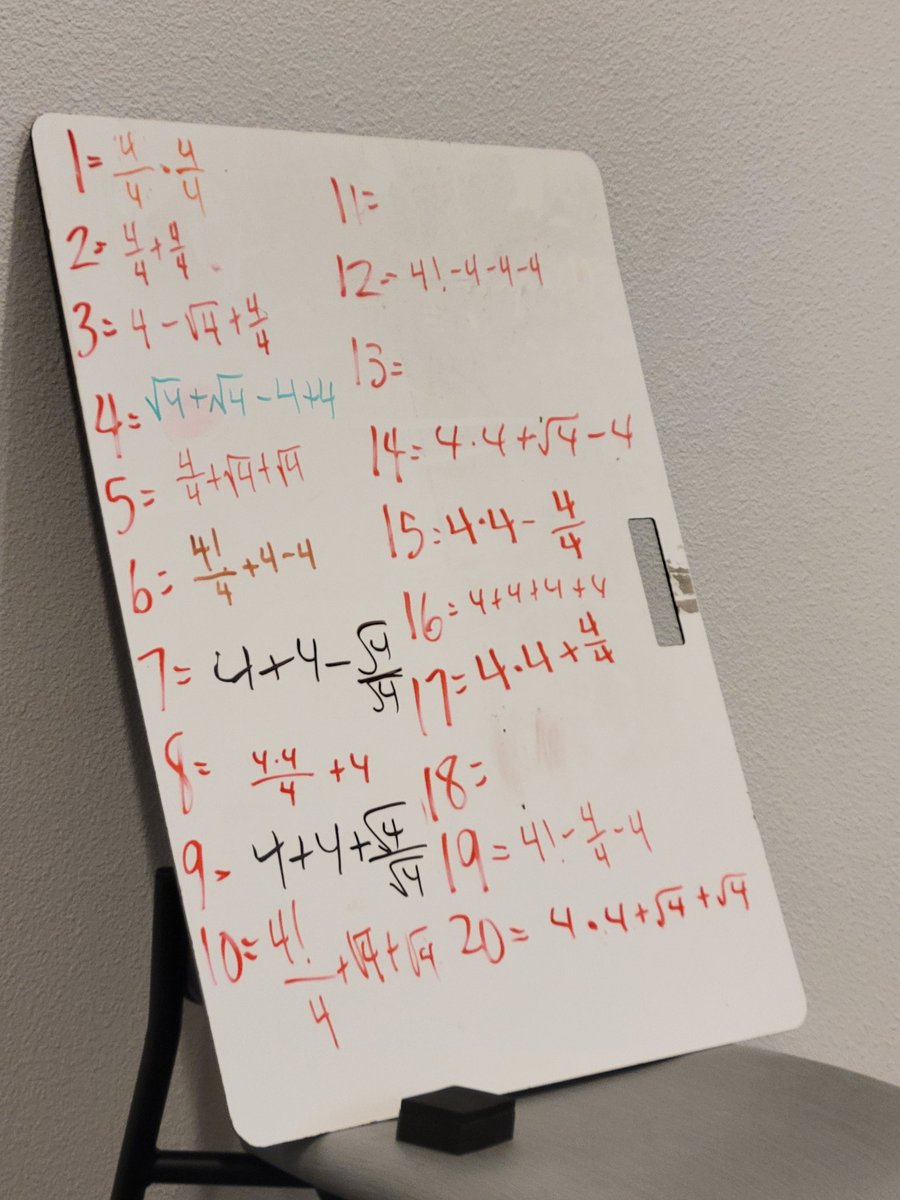 1 = 4/4 · 4/4
2 = 4/4 + 4/4
3 = 4 - √4 + 4/4
4 = √4 + √4 - 4 + 4
5 = 4/4 + √4 + √4
6 = 4!/4 + 4 - 4
7 = 4 + 4 - √4/√4
8 = 4·4/4 + 4
9 = 4 + 4 + √4/√4
10 = 4!/4 + √4 + √4
11 =
12 = 4! - 4 - 4 - 4
13 =
14 = 4·4 + √4 - 4
15 = 4·4 - 4/4
16 = 4 + 4 + 4 + 4
17 = 4·4 + 4/4
18 =
19 = 4! - 4/4 - 4
20 = 4·4 + √4 + √4